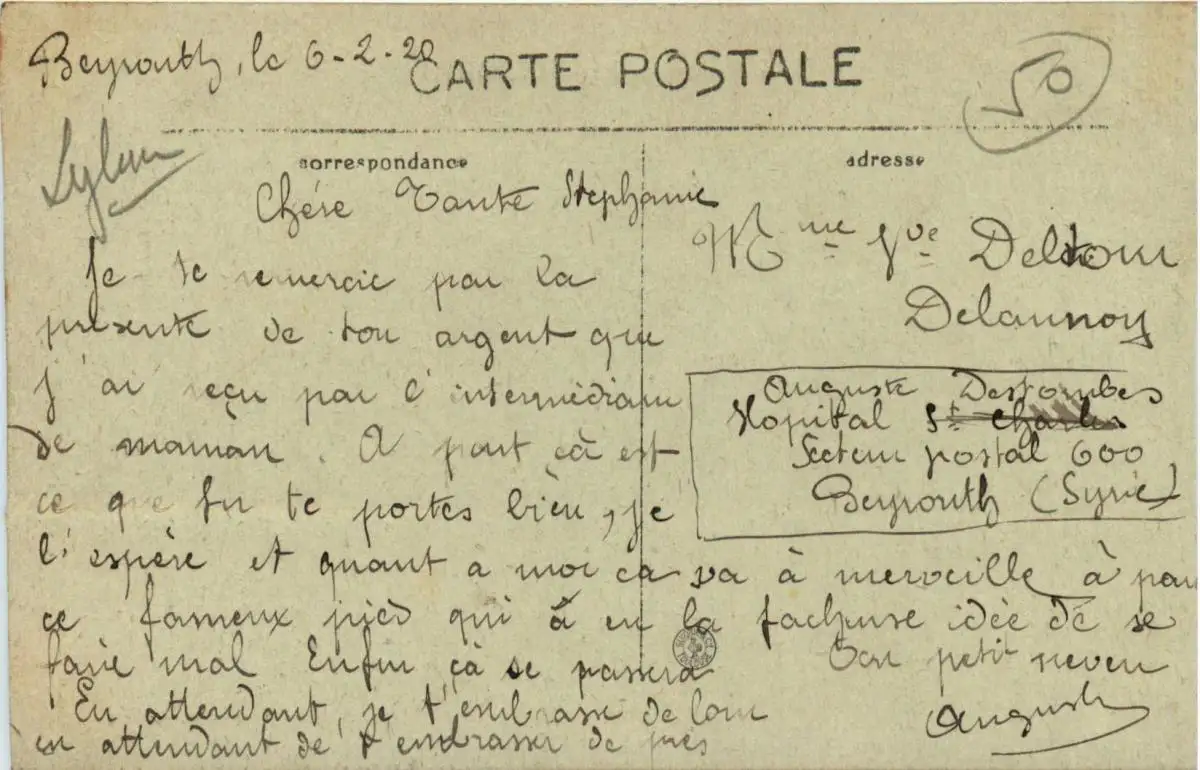 Beyrouth, le 6-2-20
CARTE POSTALE
50
correspondance
adresse
Chére Tante Stephanie
Je te remercie par la
présente de ton argent que
j'ai reçu par l'intermédiaire
de maman. A part çà est
ce que tu te portes bien, je
l'espère et quant a moi ca va à merveille à part
ce fameux pied qui à eu la facheuse idée de se
faire mal Enfin çà se passera
En attendant, je t'embrasse de loin
en attendant de t'embrasser de près
Ton petit neveu
Auguste
Mme Vve Deltour
Delannoy
Auguste Destombes
Hopital St Charles
Secteur postal 600
Beyrouth (Syrie)